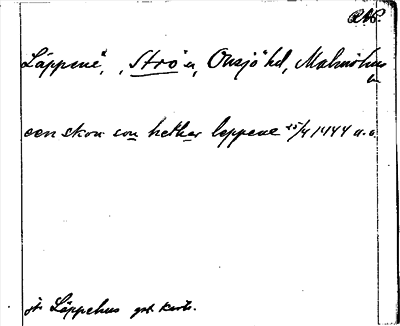 Läppene, Strö sn, Onsjö hd, Malmöhus
län
een skow som hether leppene 25/4 1444 a.a.
jfr Läppehus gst. karta.